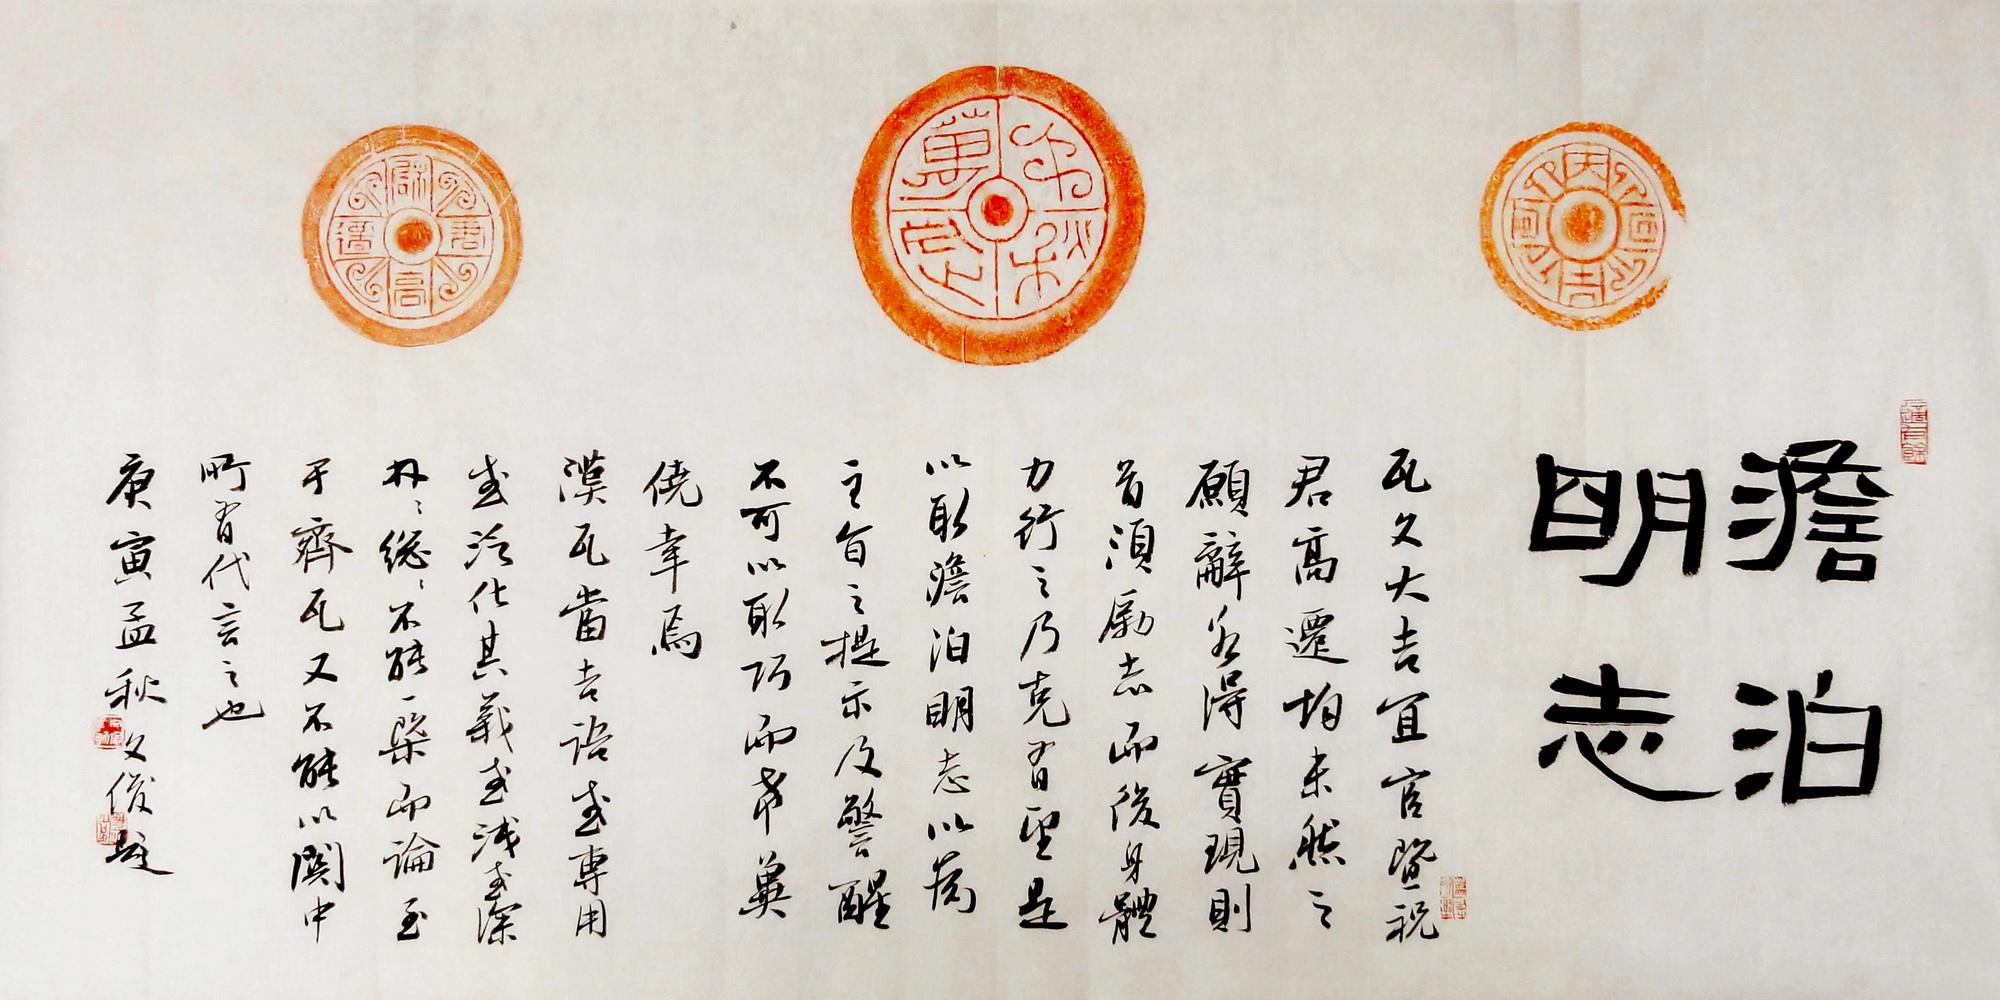 澹泊
明志
瓦文大吉宜官暨祝
君高遷均未然之
願辭若得實現則
首須勵志而後身體
力行之乃克有望是
以取澹泊明志以為
主旨之提示及警醒
不可以取巧而希冀
僥幸焉
漢瓦當吉語或專用
或泛化其義或淺或深
林〻總〻不能一槩而論至
于齊瓦又不能以關中
所有代言之也
庚寅孟秋文俊題